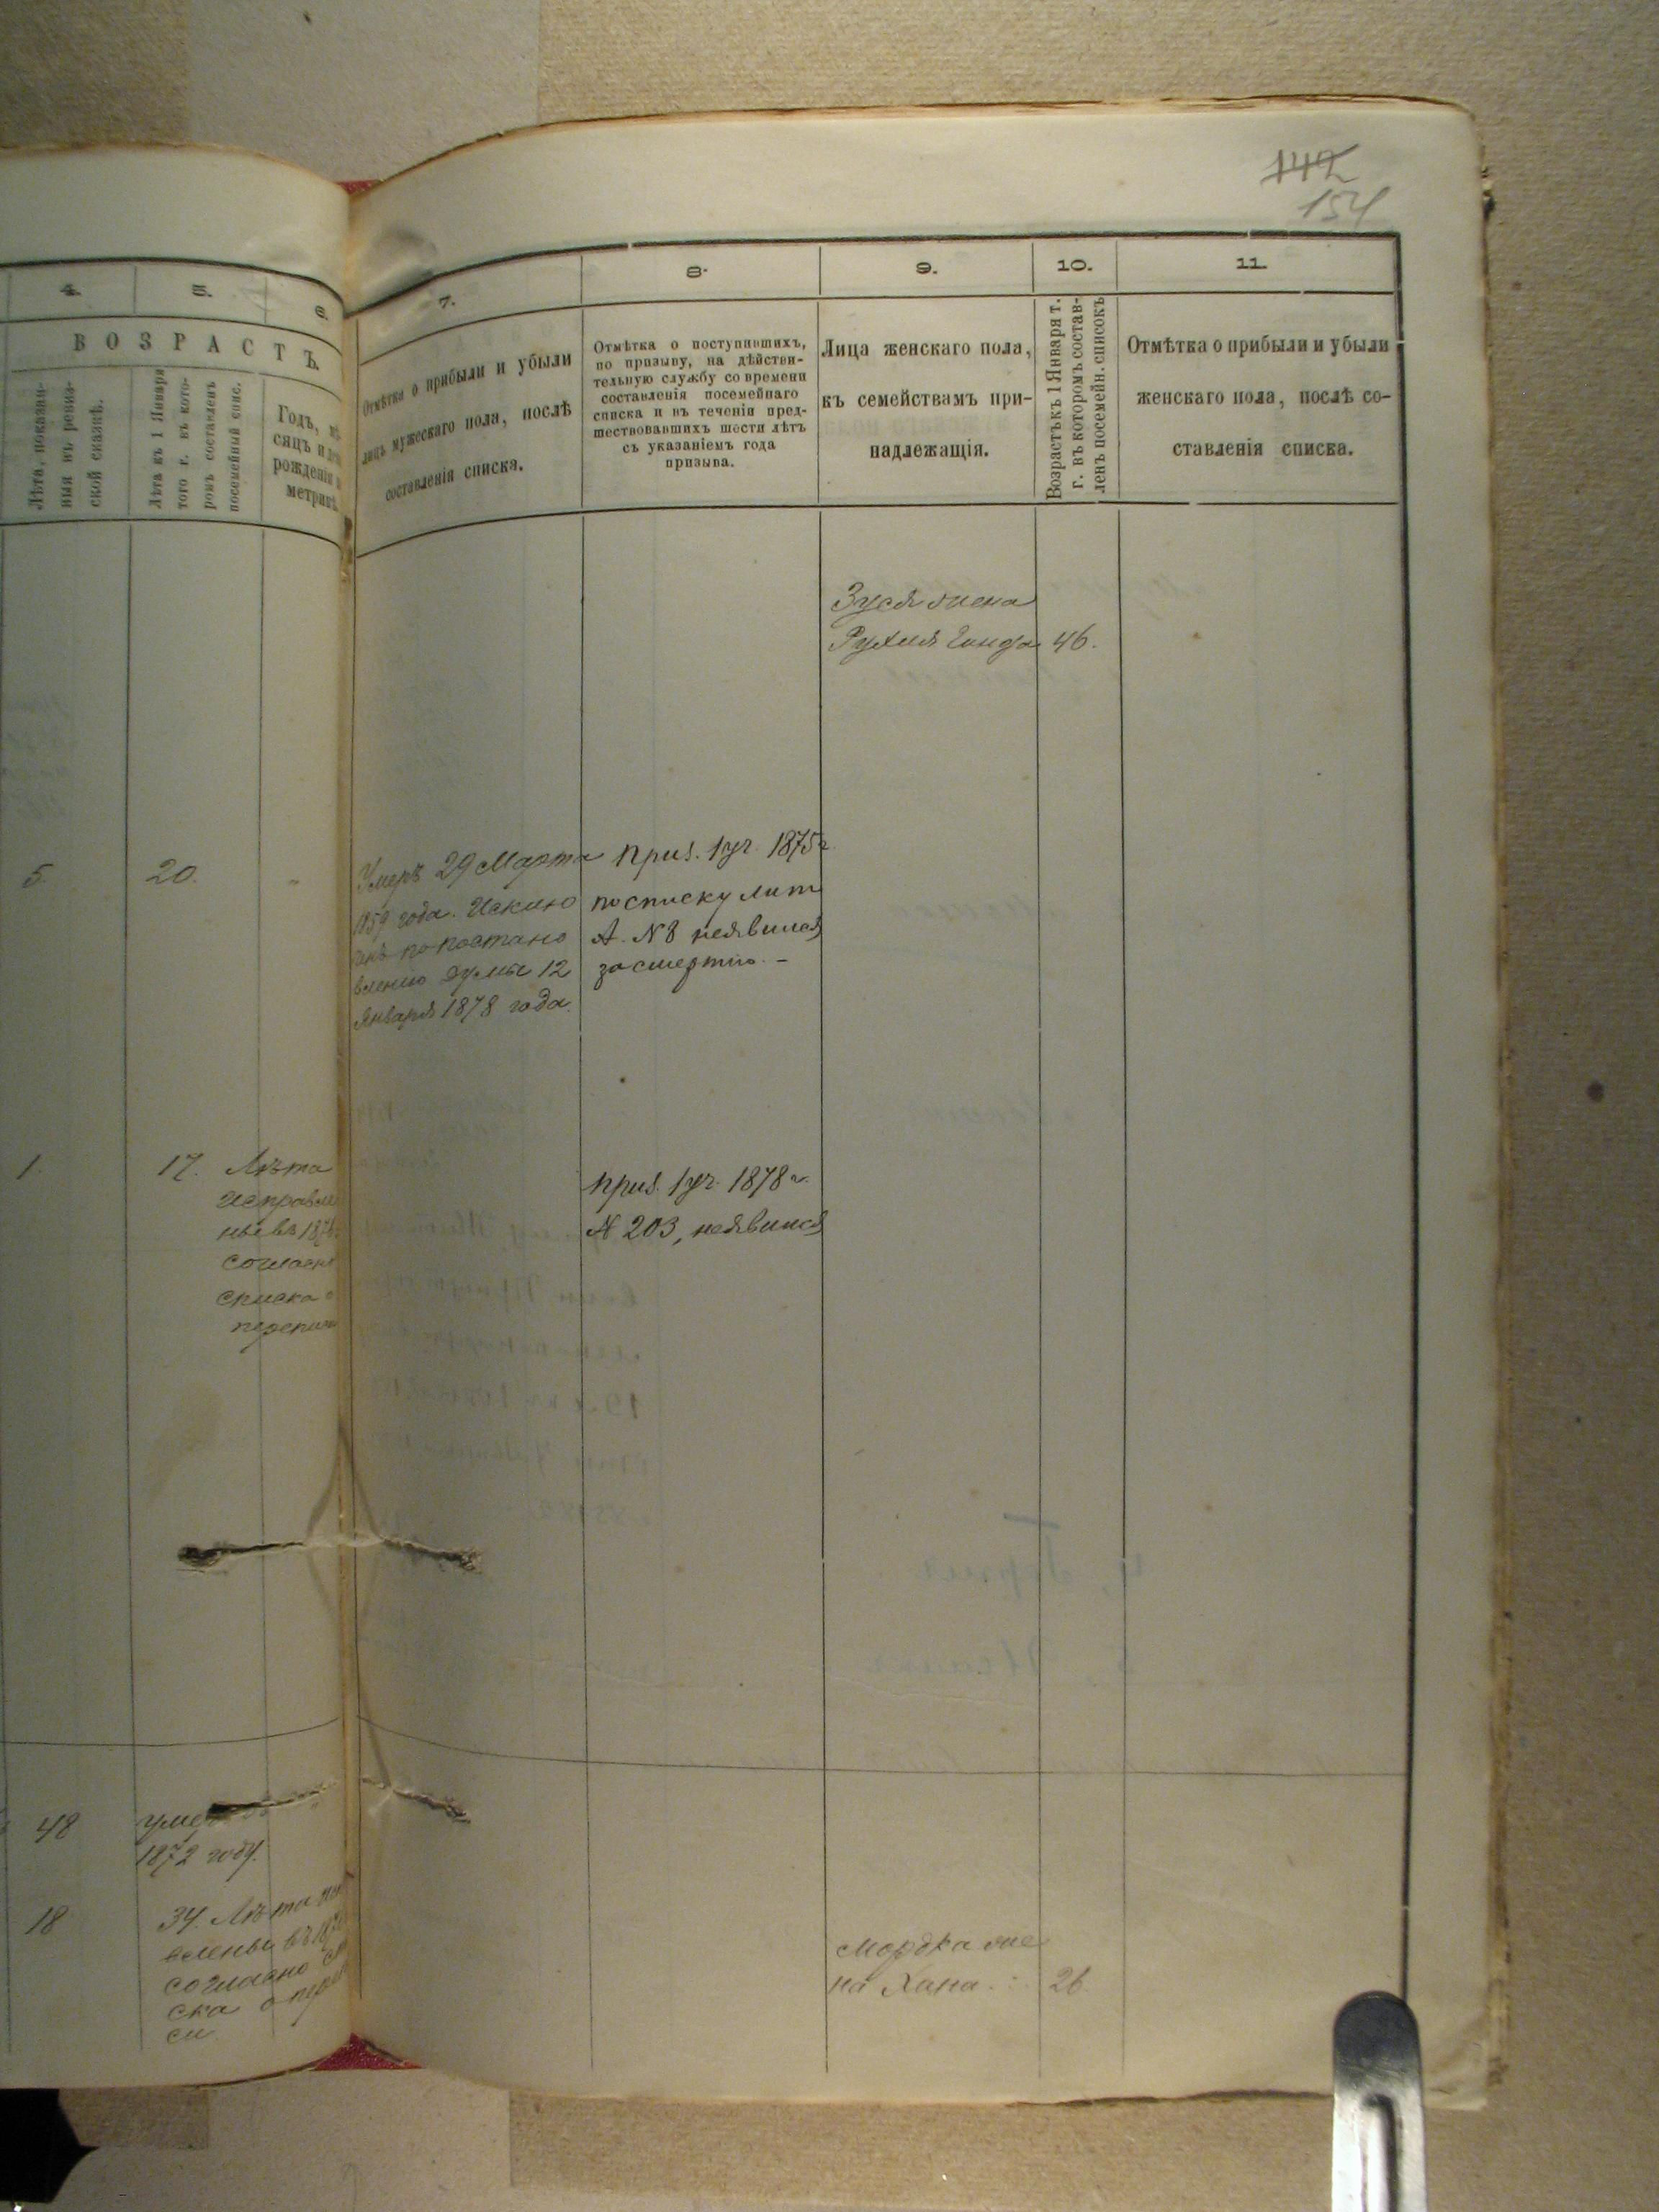 142
154
4.
5.
6.
7.
8.
9.
10.
11.
ВОЗРАСТЪ.
Лѣта, показан-
ныя въ ревиз-
ской сказкѣ.
Лѣта къ 1 Января
того г. въ кото-
ромъ составленъ
посемейный спис.
Годъ, мѣ-
сяцъ и
рожденія
метрик
Отмѣтка о прибыли и убыли
лицъ мужескаго пола, послѣ
составленія списка.
Отмѣтка о поступившихъ,
по призыву, на дѣйстви-
тельную службу со времени
составленія посемейнаго
списка и въ теченіи пред-
шествовавшихъ шести лѣтъ
съ указаніемъ года
призыва.
Лица женскаго пола,
къ семействамъ при-
надлежащія.
Возрастъ къ 1 Января т.
г. въ которомъ состав-
ленъ посемейн. списокъ
Отмѣтка о прибыли и убыли
женскаго пола, послѣ со-
ставленія списка.
Зуся жена
Рухля 46.
5.
20.
Умеръ 29 Марта
1859 года. Исклю
по постано
влению думы 12
Января 1878 года.
приз. 1 уч. 1875 г.
по списку лит
А. N 8 неявился
за смертию. –
1.
17. Лѣта
исправле
ны въ 187
согласно
списка о
перепис
приз. 1 уч. 1878 г.
N 203, неявился
48
1872 году.
18
34. Лѣта
влены въ 187
согласно
ска о пере
си.
Мордка же
на Хана. 26